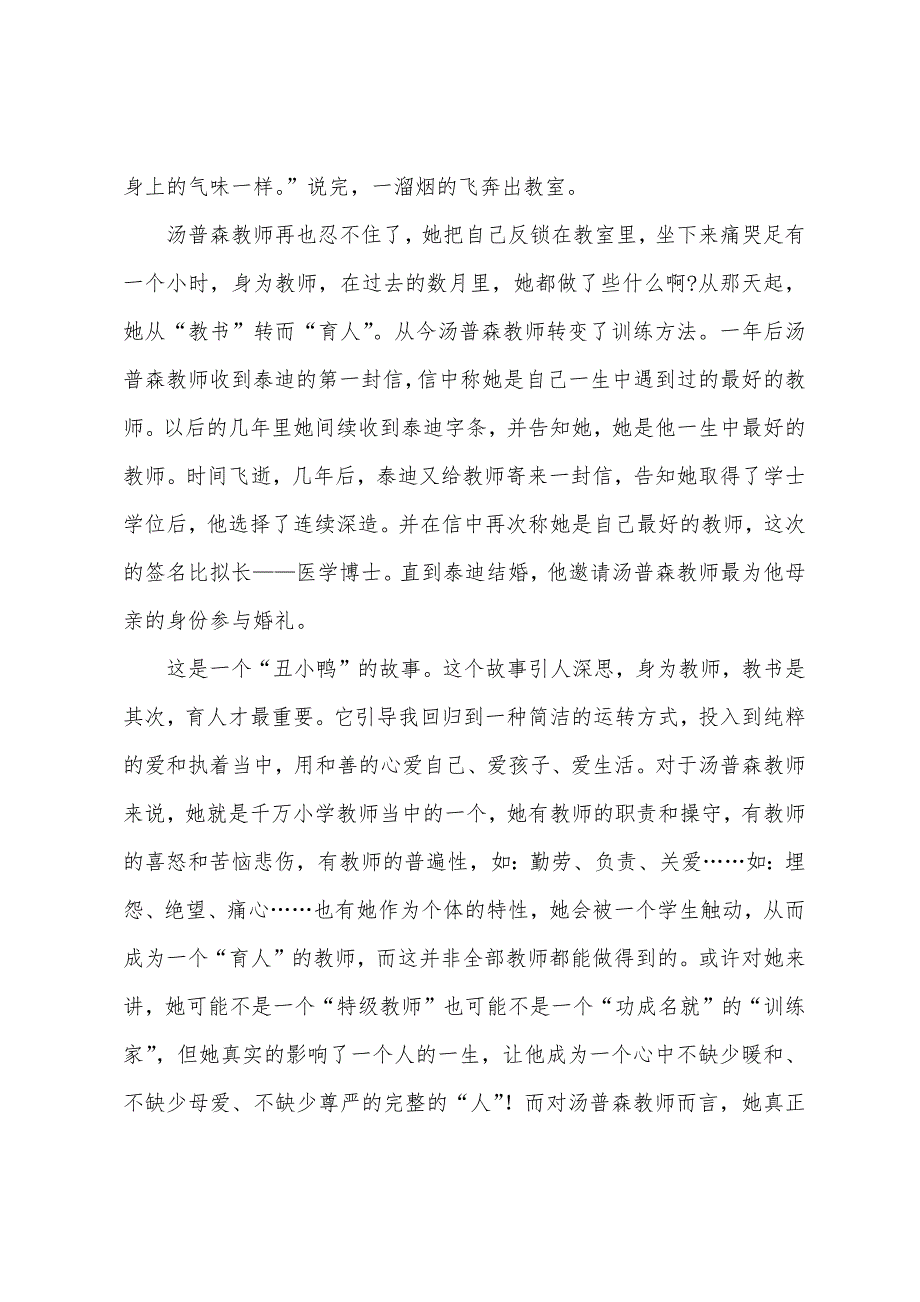 身上的气味一样。”说完，一溜烟的飞奔出教室。
汤普森教师再也忍不住了，她把自己反锁在教室里，坐下来痛哭足有
一个小时，身为教师，在过去的数月里，她都做了些什么啊?从那天起，
她从“教书”转而“育人”。从今汤普森教师转变了训练方法。一年后汤
普森教师收到泰迪的第一封信，信中称她是自己一生中遇到过的最好的教
师。以后的几年里她间续收到泰迪字条，并告知她，她是他一生中最好的
教师。时间飞逝，几年后，泰迪又给教师寄来一封信，告知她取得了学士
学位后，他选择了连续深造。并在信中再次称她是自己最好的教师，这次
的签名比拟长——医学博士。直到泰迪结婚，他邀请汤普森教师最为他母
亲的身份参与婚礼。
这是一个“丑小鸭”的故事。这个故事引人深思，身为教师，教书是
其次，育人才最重要。它引导我回归到一种简洁的运转方式，投入到纯粹
的爱和执着当中，用和善的心爱自己、爱孩子、爱生活。对于汤普森教师
来说，她就是千万小学教师当中的一个，她有教师的职责和操守，有教师
的喜怒和苦恼悲伤，有教师的普遍性，如：勤劳、负责、关爱……如：埋
怨、绝望、痛心……也有她作为个体的特性，她会被一个学生触动，从而
成为一个“育人”的教师，而这并非全部教师都能做得到的。或许对她来
讲，她可能不是一个“特级教师”也可能不是一个“功成名就”的“训练
家”，但她真实的影响了一个人的一生，让他成为一个心中不缺少暖和、
不缺少母爱、不缺少尊严的完整的“人”！而对汤普森教师而言，她真正